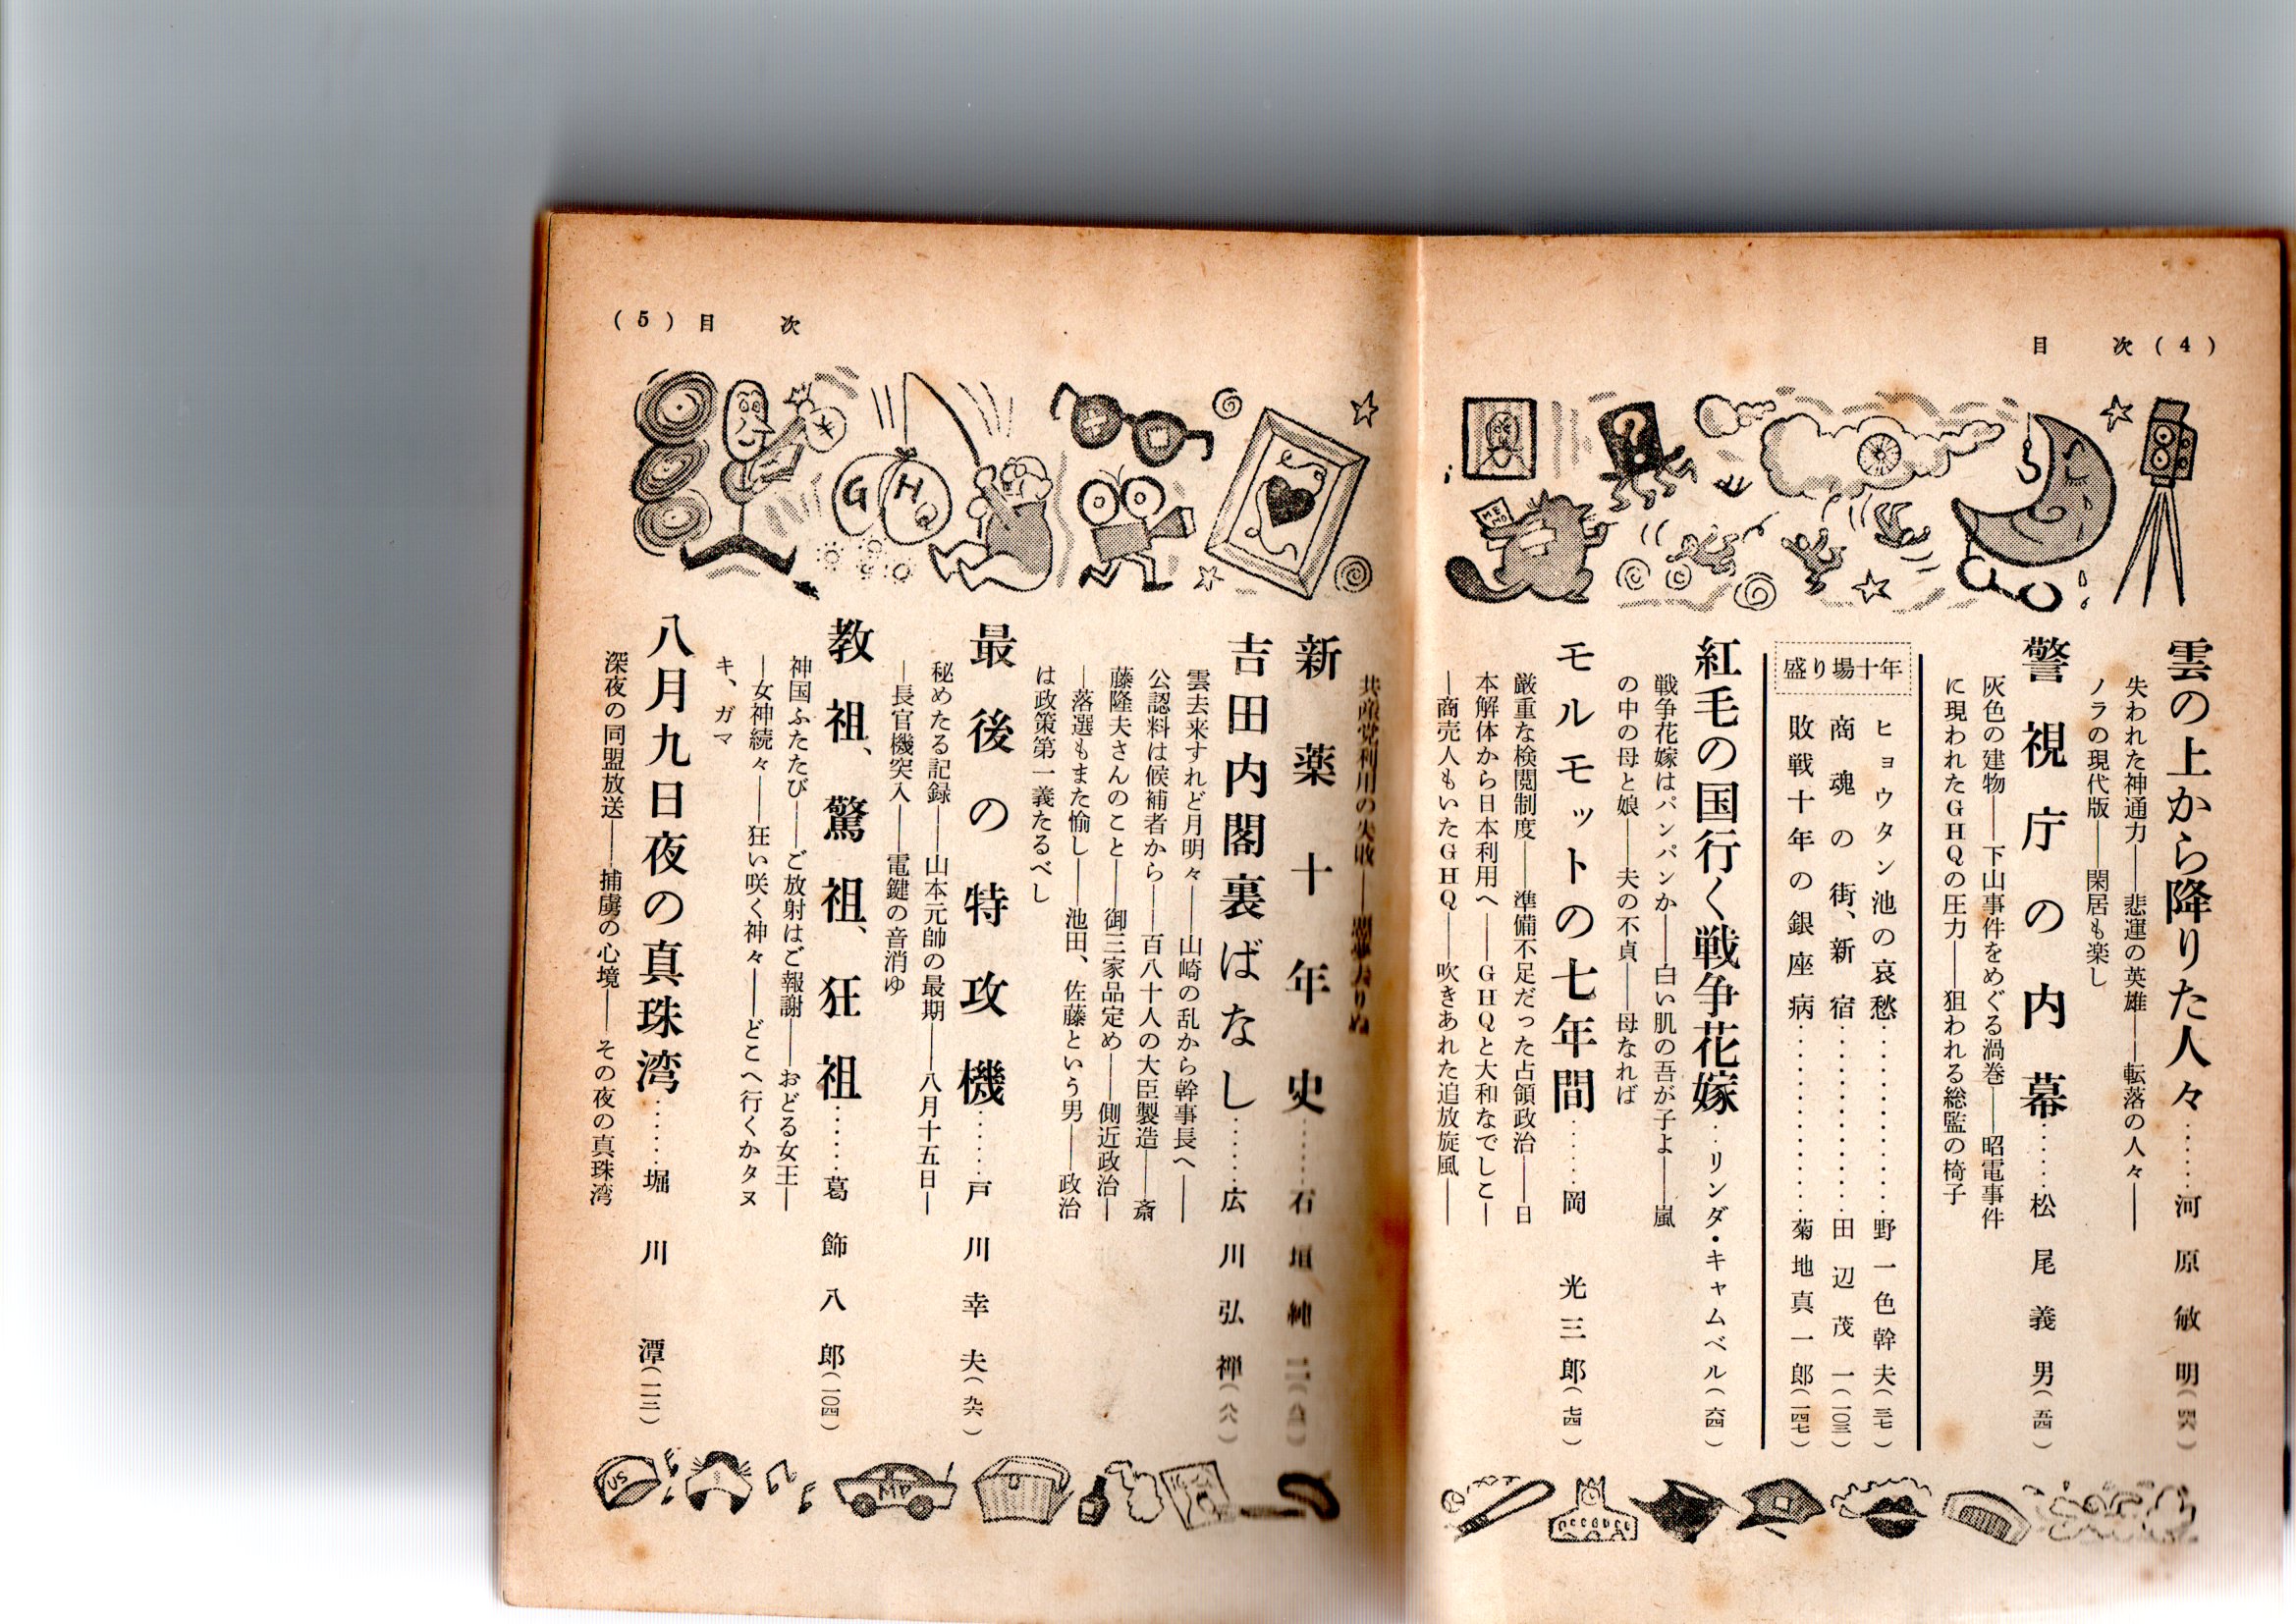 目次(4)
雲の上から降りた人々……河原敏明(四六)
失われた神通力――悲運の英雄――転落の人々――
ノラの現代版――閑居も楽し
警視庁の内幕……松尾義男(五四)
灰色の建物――下山事件をめぐる渦巻――昭電事件
に現われたGHQの圧力――狙われる総監の椅子
盛り場十年
ヒョウタン池の哀愁……野一色幹夫(三七)
商魂の街、新宿……田辺茂一(一〇三)
敗戦十年の銀座病……菊地真一郎(一四七)
紅毛の国行く戦争花嫁…リンダ・キャムベル(六四)
戦争花嫁はパンパンか――白い肌の吾が子よ――嵐
の中の母と娘――夫の不貞――母なれば
モルモットの七年間……岡光三郎(七四)
厳重な検閲制度――準備不足だった占領政治――日
本解体から日本利用へ――GHQと大和なでしこ――
商売人もいたGHQ――吹きあれた追放旋風――
共産党利用の失敗――
目次(5)
新薬十年史……石垣純二
吉田内閣裏ばなし……広川弘禅
雲去来すれど月明々――山崎の乱から幹事長へ――
公認料は候補者から――百八十人の大臣製造――斎
藤隆夫さんのこと――御三家品定め――側近政治―
―落選もまた愉し――池田、佐藤という男――政治
は政策第一義たるべし
最後の特攻機……戸川幸夫(九六)
秘めたる記録――山本元帥の最期――八月十五日―
―長官機突入――電鍵の音消ゆ
教祖、驚祖、狂祖……葛飾八郎(一〇四)
神国ふたたび――ご放射はご報謝――おどる女王―
―女神続々――狂い咲く神々――どこへ行くかタヌ
キ、ガマ
八月九日夜の真珠湾……堀川潭(一一三)
深夜の同盟放送――捕虜の心境――その夜の真珠湾
GHQ
MEMO
¥
?
US
MP